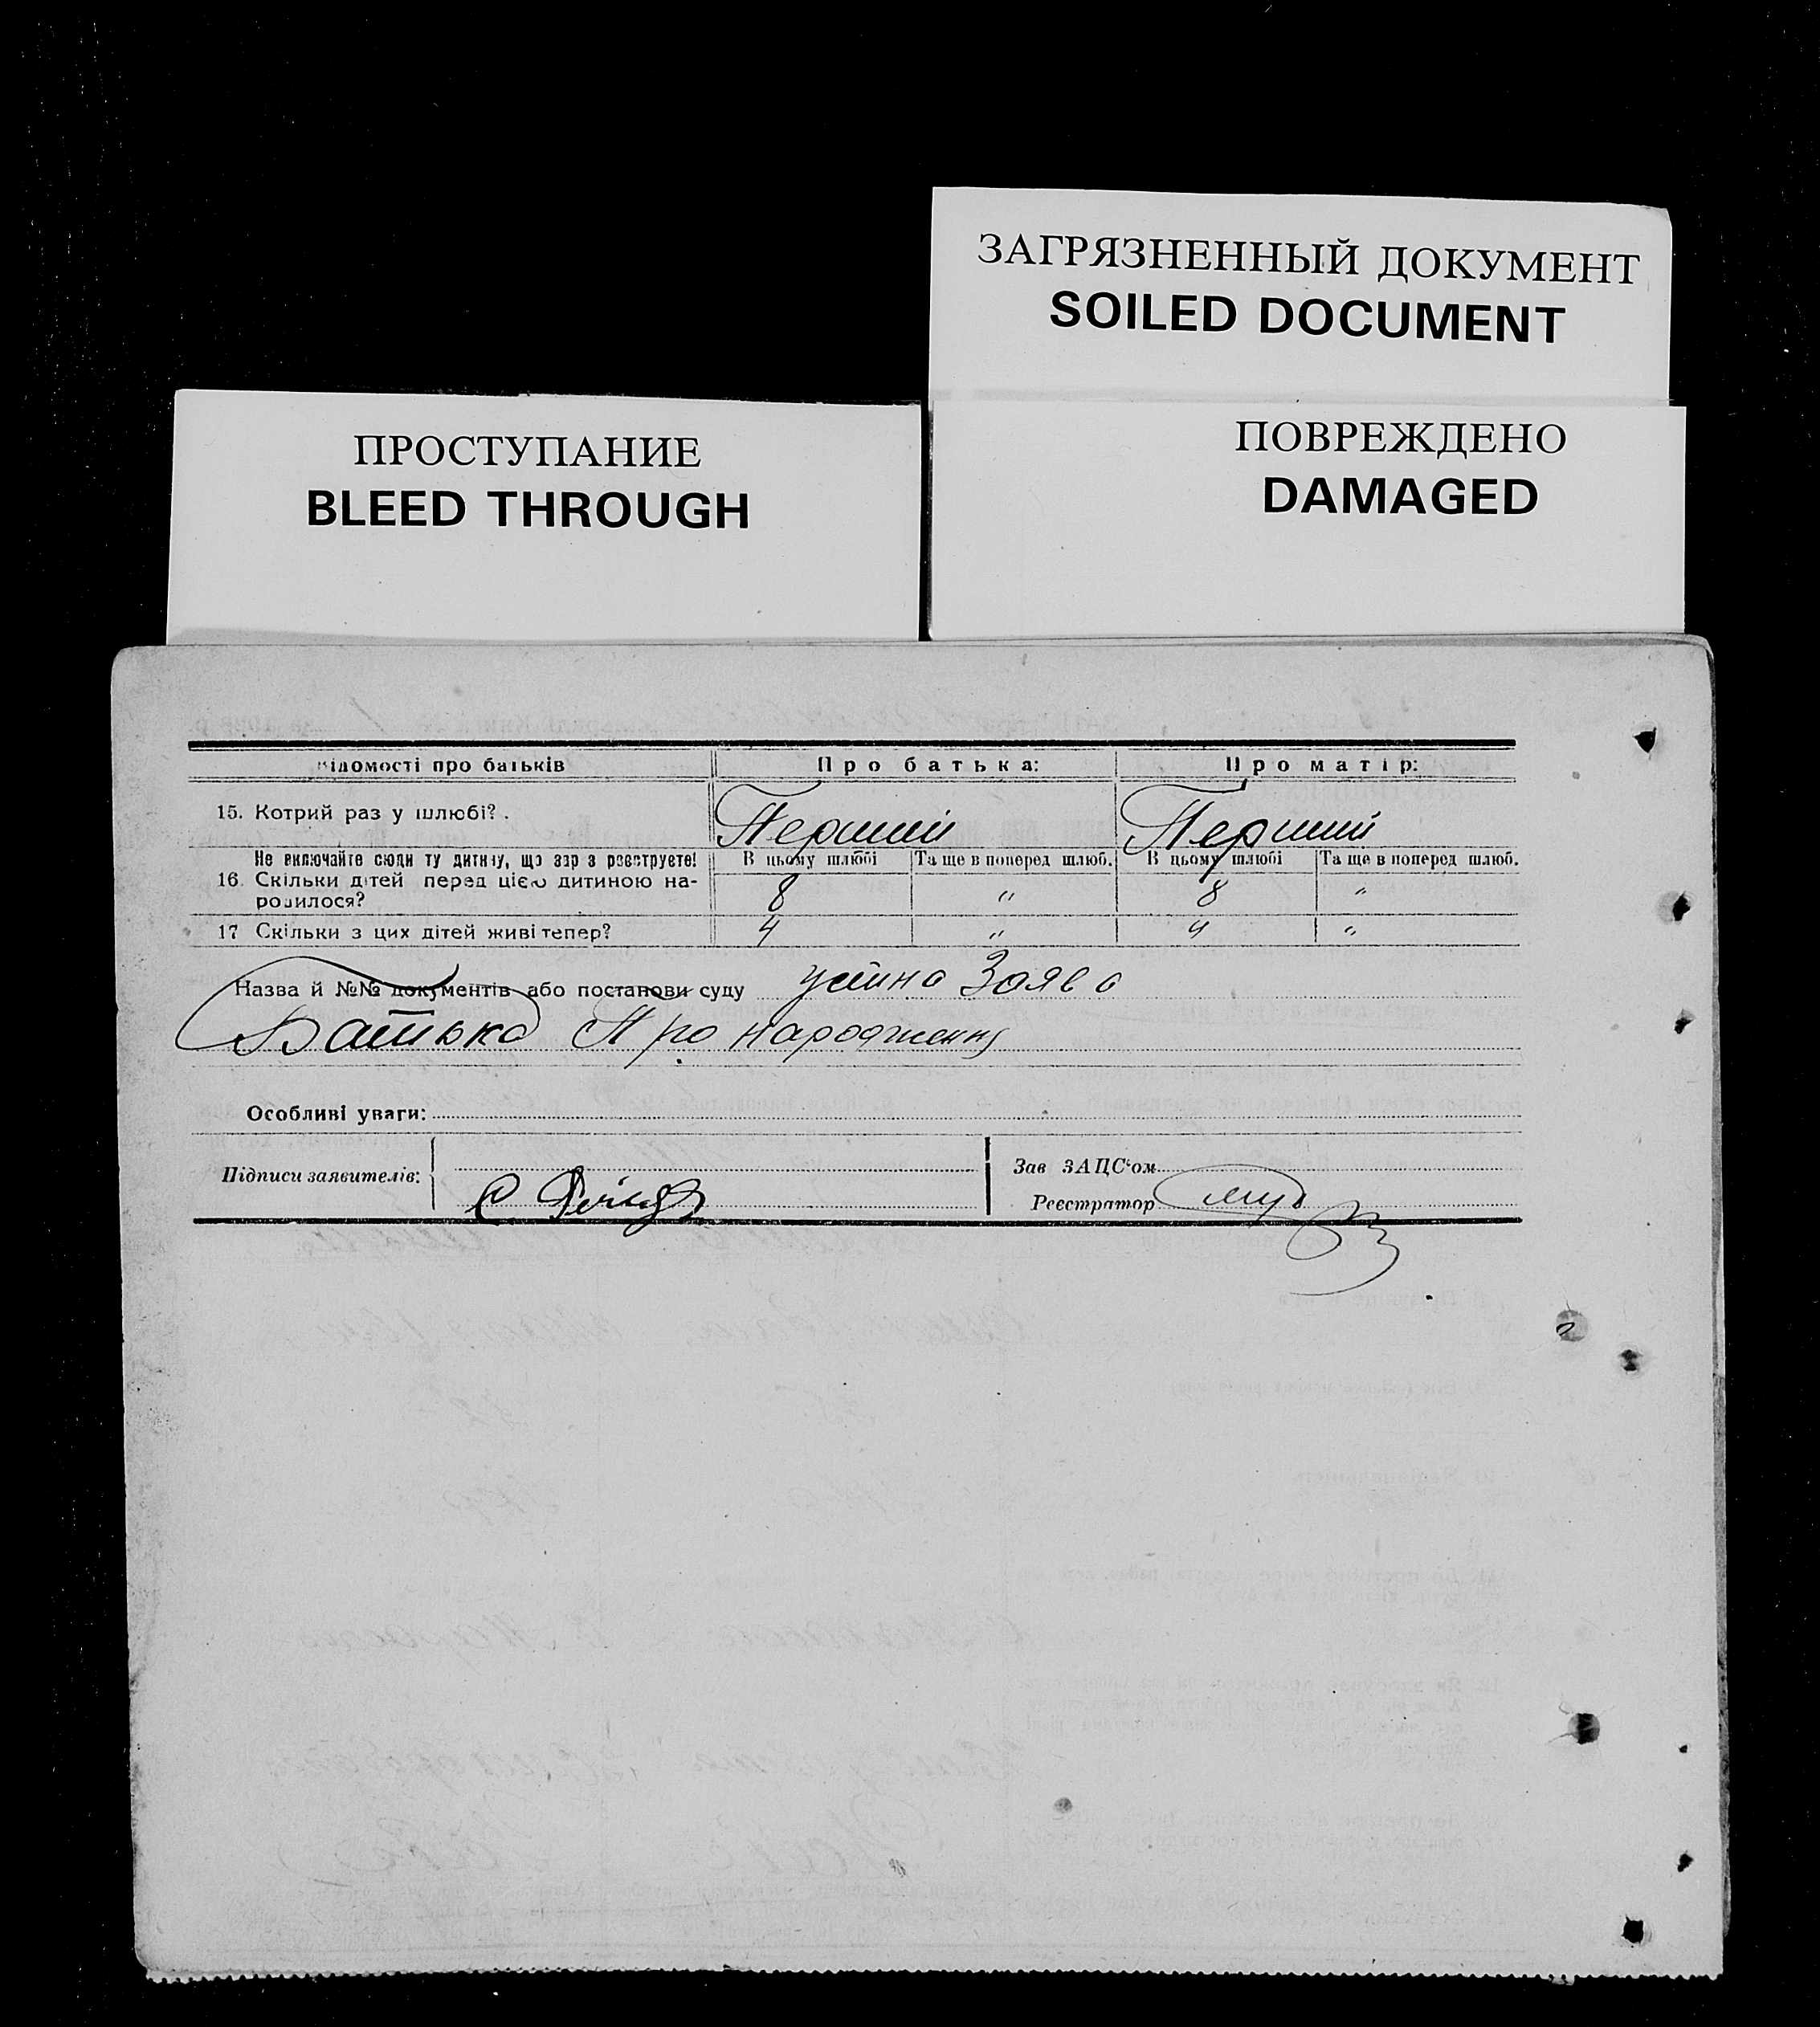 ЗАГРЯЗНЕННЫЙ ДОКУМЕНТ
SOILED DOCUMENT
ПРОСТУПАНИЕ
BLEED THROUGH
ПОВРЕЖДЕНО
DAMAGED
Відомості про батьків Про батька: Про матір:
15. Котрий раз у шлюбі? . Перший Перший
Не включайте сюди ту дитину, що зараз реєструєте! В цьому шлюбі Та ще в поперед шлюб. В цьому шлюбі Та ще в поперед шлюб.
16. Скільки дітей перед цією дитиною на-
родилося? 8 " 8 "
17 Скільки з цих дітей живі тепер? 4 " 4 "
Назва й №№ документів або постанови суду устна Заява
Батька Про народження
Особливі уваги:
Підписи заявителів: Зав ЗАЦС'ом
Реєстратор